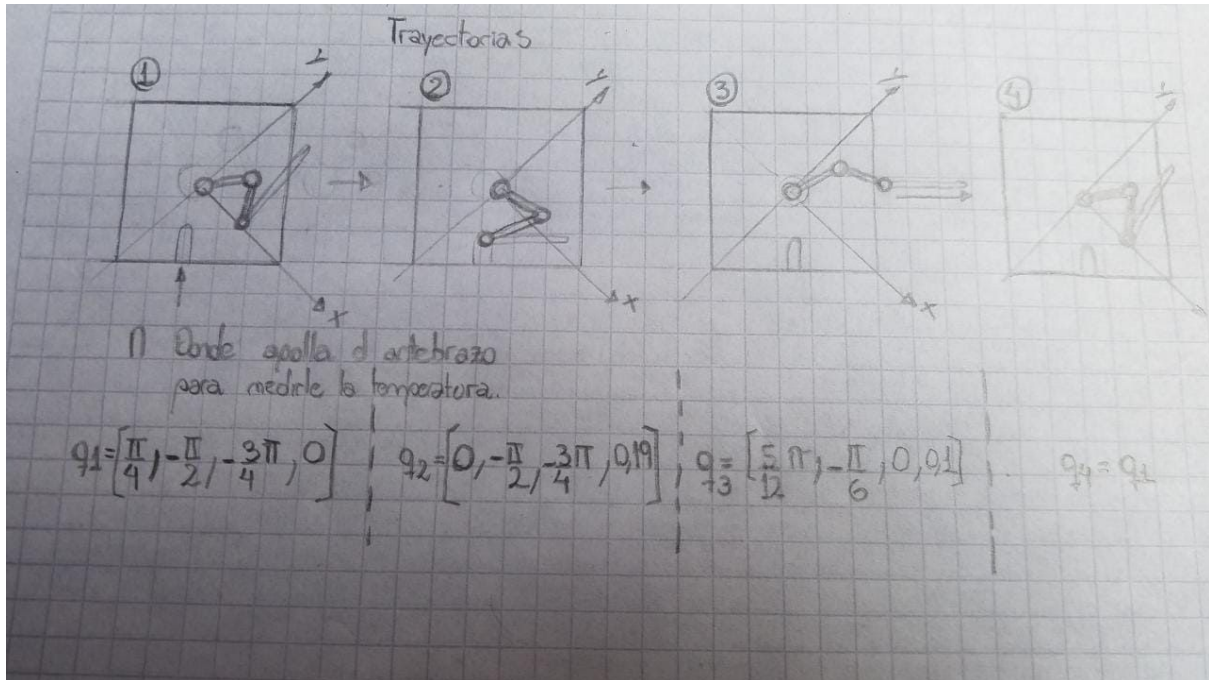 Trayectorias
① ② ③ ④
Y Y Y Y
X X X
∩ Donde apolla el antebrazo
para medirle la temperatura.
q1=[π/4, -π/2, -3/4 π, 0] q2=[0, -π/2, -3/4 π, 0,19] q3=[5/12 π, -π/6, 0, 0,1] q4=q1